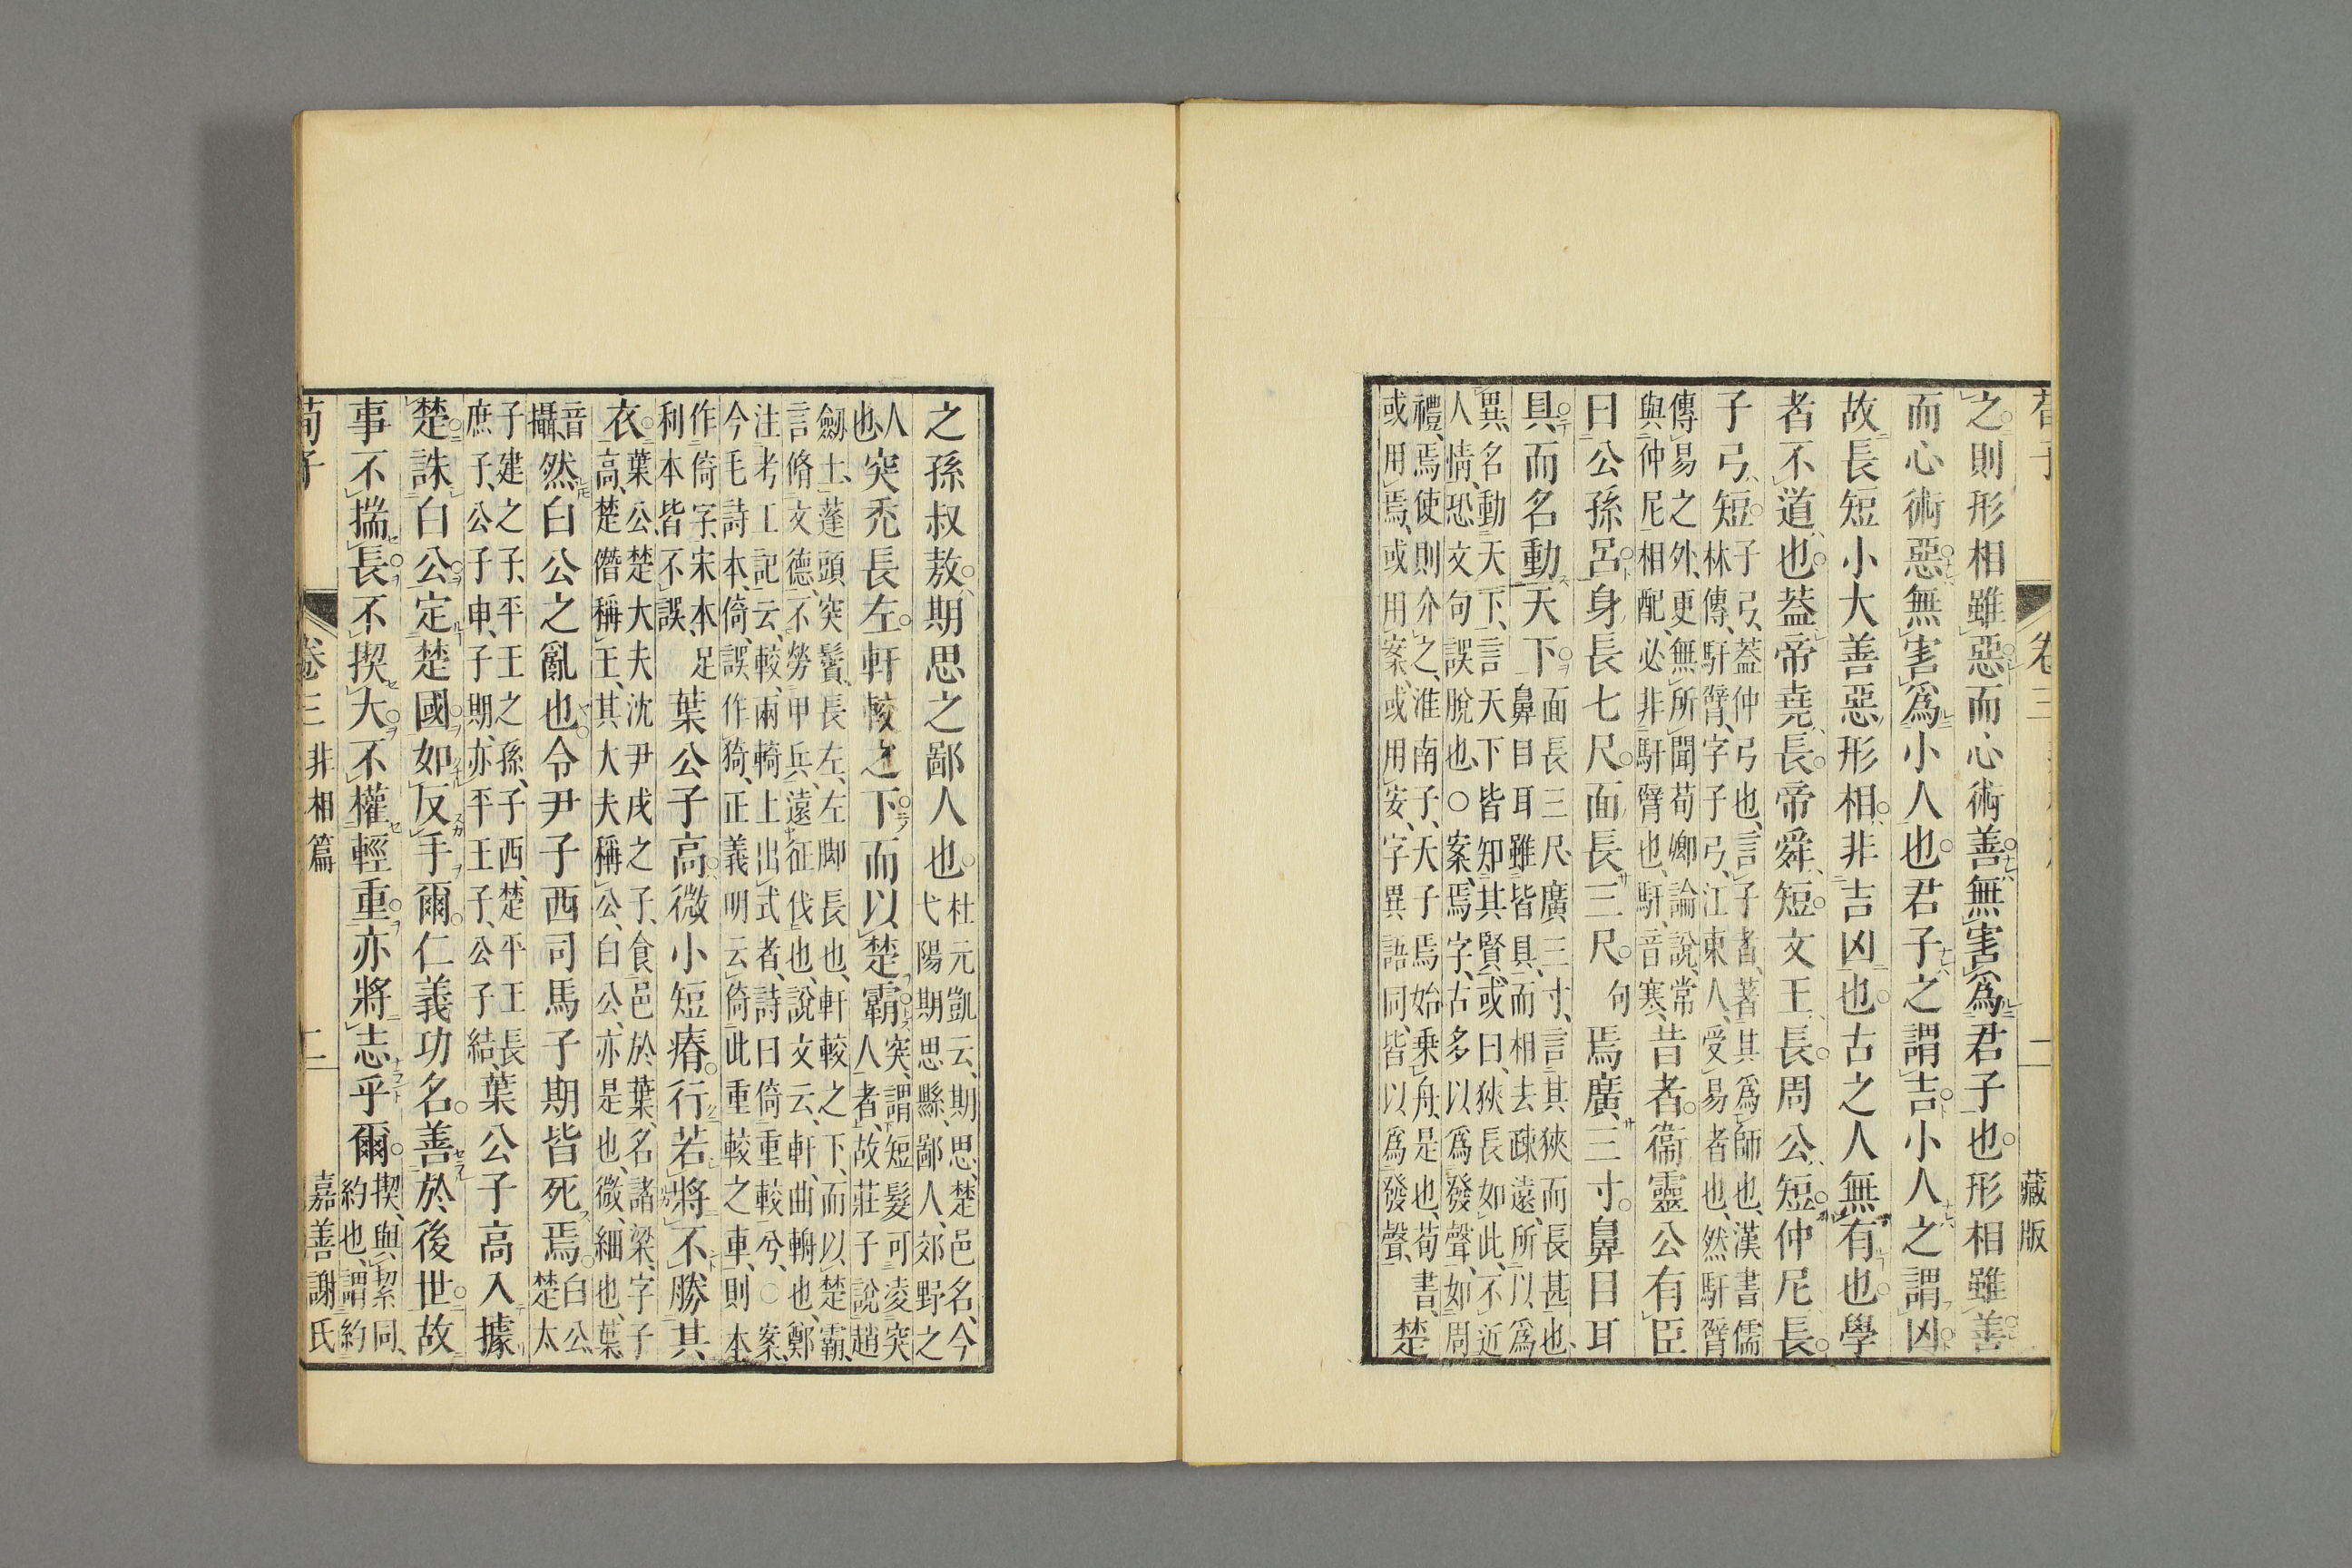 卷三 二 藏版
之則形相雖惡而心術善無害爲君子也形相雖善
而心術惡無害爲小人也君子之謂吉小人之謂凶
故長短小大善惡形相非吉凶也古之人無有也學
者不道也葢帝堯長帝舜短文王長周公短仲尼長
子弓短
子弓、葢仲弓也、言子者、著其爲師也、漢書儒
林傳、馯臂、字子弓、江東人、受易者也、然馯臂
傳易之外、更無所聞荀卿論說、常
與仲尼相配、必非馯臂也、馯、音寒、
昔者衞靈公有臣
曰公孫呂身長七尺面長三尺 句 焉廣三寸鼻目耳
具而名動天下
面長三尺、廣三寸、言其狹而長甚也、
鼻目耳雖皆具、而相去疎遠、所以爲
異、名動天下、言天下皆知其賢、或曰、狹長如此、不近
人情、恐文句誤脫也、○案、焉字、古多以爲發聲、如周
禮、焉使則介之、淮南子、天子焉始乘舟、是也、荀書、
或用焉、或用案、或用安、字異語同、皆以爲發聲、
楚
之孫叔敖期思之鄙人也
杜元凱云、期思、楚邑名、今
弋陽期思縣、鄙人、郊野之
人
也
突禿長左軒較之下而以楚霸
突、謂短髮可凌突
人者、故莊子說趙
劒士、蓬頭、突鬢、長左、左脚長也、軒較之下、而以楚霸、
言脩文德、不勞甲兵、遠征伐也、說文云、軒、曲輈也、鄭
注考工記云、較、兩輢上出式者、詩曰倚重較兮、○案、
今毛詩本、倚、誤作猗、正義明云倚此重較之車、則本
作倚字、宋本、足
利本皆不誤、
葉公子高微小短瘠行若將不勝其
衣
葉公、楚大夫沈尹戌之子、食邑於葉、名諸梁、字子
高、楚僭稱王、其大夫稱公、白公、亦是也、微、細也、葉
音
攝、
然白公之亂也令尹子西司馬子期皆死焉
白公、
楚太
子建之子、平王之孫、子西、楚平王長
庶子、公子申、子期、亦平王子、公子結、
葉公子高入據
楚誅白公定楚國如反手爾仁義功名善於後世故
事不揣長不揳大不權輕重亦將志乎爾
揳、與絜同、
約也、謂約
荀子 卷三 非相篇 二 嘉善謝氏